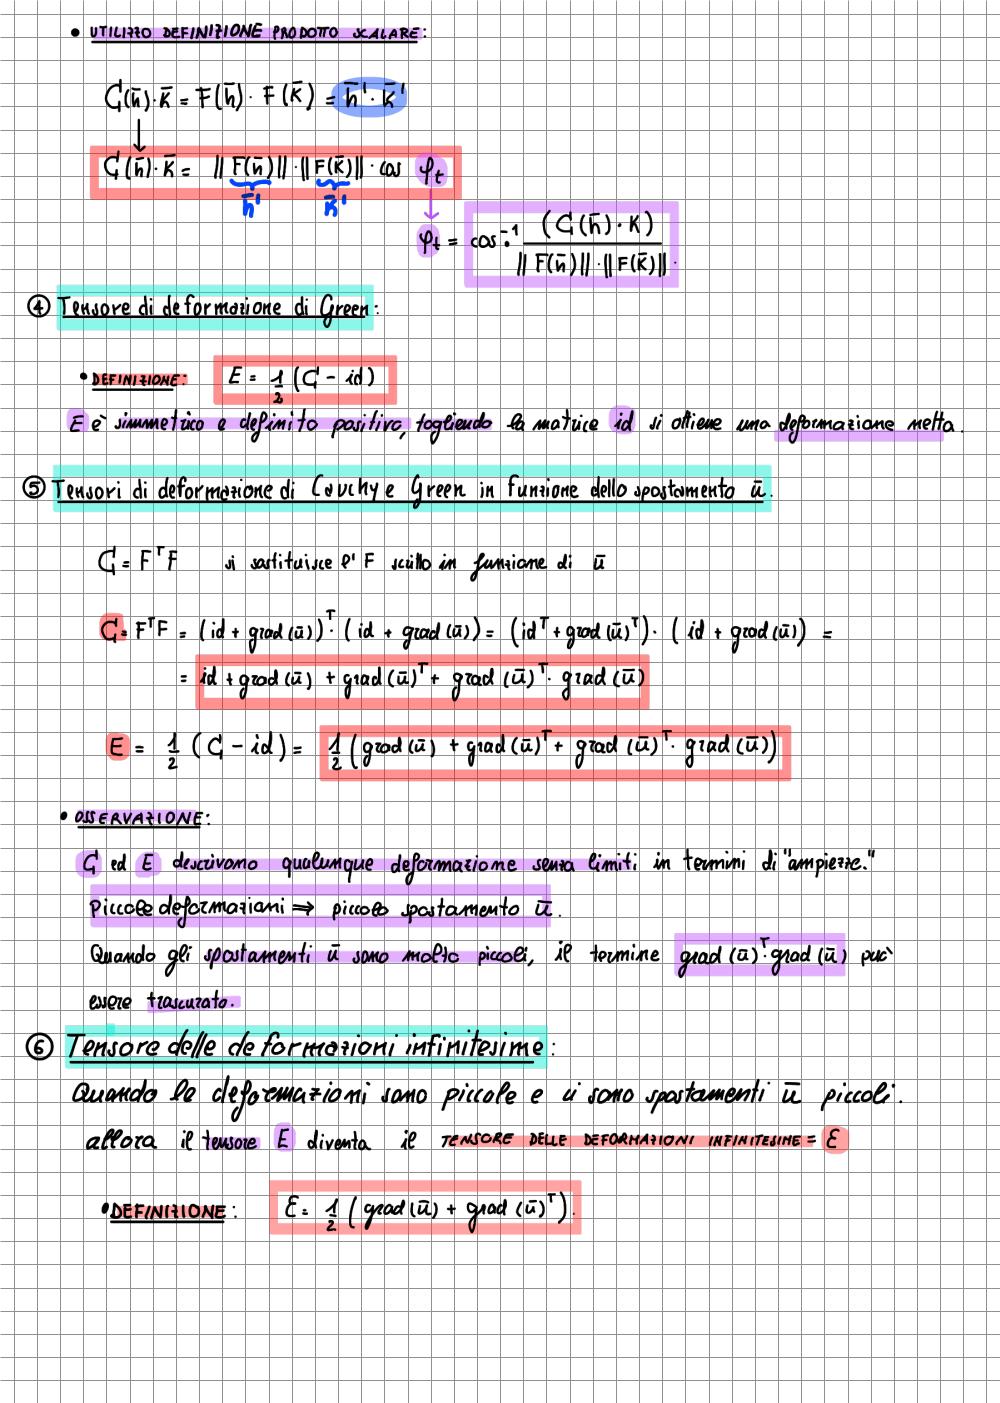 • UTILIZZO DEFINIZIONE PRODOTTO SCALARE:
C(h̄)·k̄ = F(h̄) · F(k̄) = h̄'·k̄'
↓
C(h̄)·k̄ = ||F(h̄)||·||F(k̄)||·cos φt
h̄' k̄'
φt = cos⁻¹ (C(h̄)·k) / ||F(h̄)||·||F(k̄)||.
④ Tensore di deformazione di Green:
• DEFINIZIONE: E = 1/2 (C - id)
E è simmetrico e definito positivo, togliendo la matrice id si ottiene una deformazione netta.
⑤ Tensori di deformazione di Cauchy e Green in funzione dello spostamento ū.
C = FᵀF si sostituisce l' F scritto in funzione di ū
C = FᵀF = (id + grad(ū))ᵀ·(id + grad(ū)) = (idᵀ + grad(ū)ᵀ)·(id + grad(ū)) =
= id + grad(ū) + grad(ū)ᵀ + grad(ū)ᵀ·grad(ū)
E = 1/2 (C - id) = 1/2 (grad(ū) + grad(ū)ᵀ + grad(ū)ᵀ·grad(ū))
• OSSERVAZIONE:
C ed E descrivono qualunque deformazione senza limiti in termini di "ampiezze."
Piccole deformazioni ⇒ piccolo spostamento ū.
Quando gli spostamenti ū sono molto piccoli, il termine grad(ū)ᵀ·grad(ū) può
essere trascurato.
⑥ Tensore delle deformazioni infinitesime:
Quando le deformazioni sono piccole e ci sono spostamenti ū piccoli.
allora il tensore E diventa il TENSORE DELLE DEFORMAZIONI INFINITESIME = ℰ
• DEFINIZIONE: ℰ = 1/2 (grad(ū) + grad(ū)ᵀ).